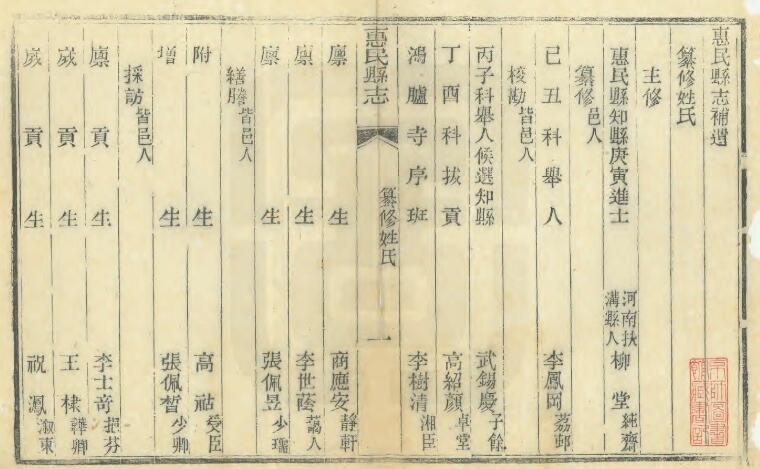 惠民縣志補遺
纂修姓氏
主修
惠民縣知縣庚寅進士 河南扶溝縣人 柳堂 純齋
纂修 邑人
己丑科舉人 李鳳岡 荔邨
校勘 皆邑人
丙子科舉人候選知縣 武錫慶 子餘
丁酉科拔貢 高紹顏 卓堂
鴻臚寺序班 李樹清 湘臣
惠民縣志 纂修姓氏 一
廩生 商應安 靜軒
廩生 李世蔭 藹人
廩生 張佩昱 少璠
繕謄 皆邑人
附生 高祐 受臣
增生 張佩晳 少卿
採訪 皆邑人
廩貢生 李士奇 挹芬
歲貢生 王棣 韡卿
歲貢生 祝鳳 淑東